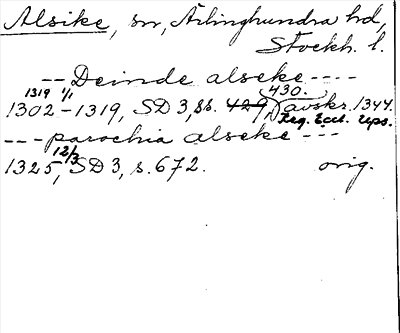 Alsike, sn, Ärlinghundra hd,
Stockh. l.
-- Deinde alseke ----
1319 1/1 430.
1302-1319, SD 3, s. 429, avskr. 1344.
Reg. Eccl. Ups.
--- parochia alseke ---
12/3
1325, SD 3, s. 672. orig.